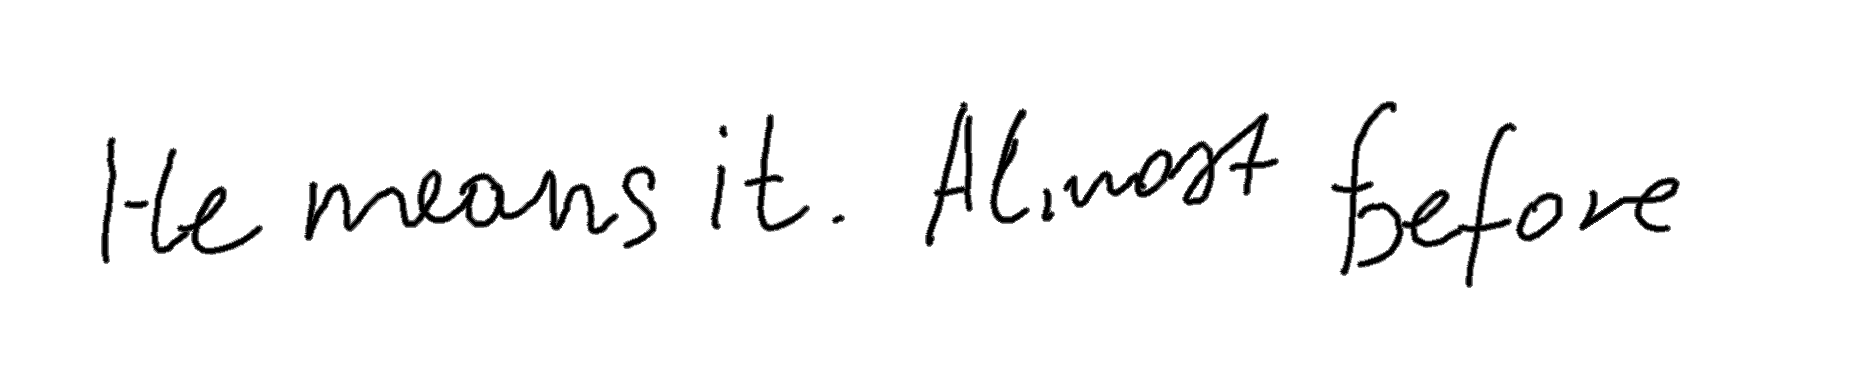 He means it. Almost before